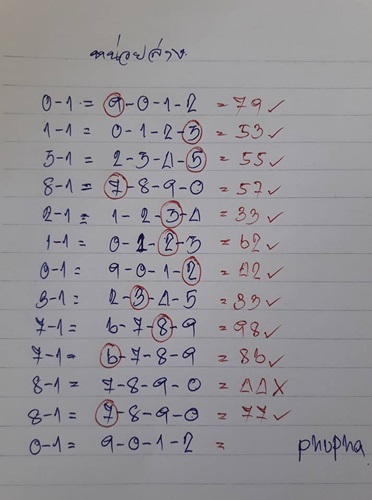 หน่วยล่าง
0-1 = 9-0-1-2 = 79 ✓
1-1 = 0-1-2-3 = 53 ✓
5-1 = 2-3-4-5 = 55 ✓
8-1 = 7-8-9-0 = 57 ✓
2-1 = 1-2-3-4 = 33 ✓
1-1 = 0-1-2-3 = 62 ✓
0-1 = 9-0-1-2 = 42 ✓
3-1 = 2-3-4-5 = 33 ✓
7-1 = 6-7-8-9 = 98 ✓
7-1 = 6-7-8-9 = 86 ✓
8-1 = 7-8-9-0 = 44 X
8-1 = 7-8-9-0 = 77 ✓
0-1 = 9-0-1-2 = phupha